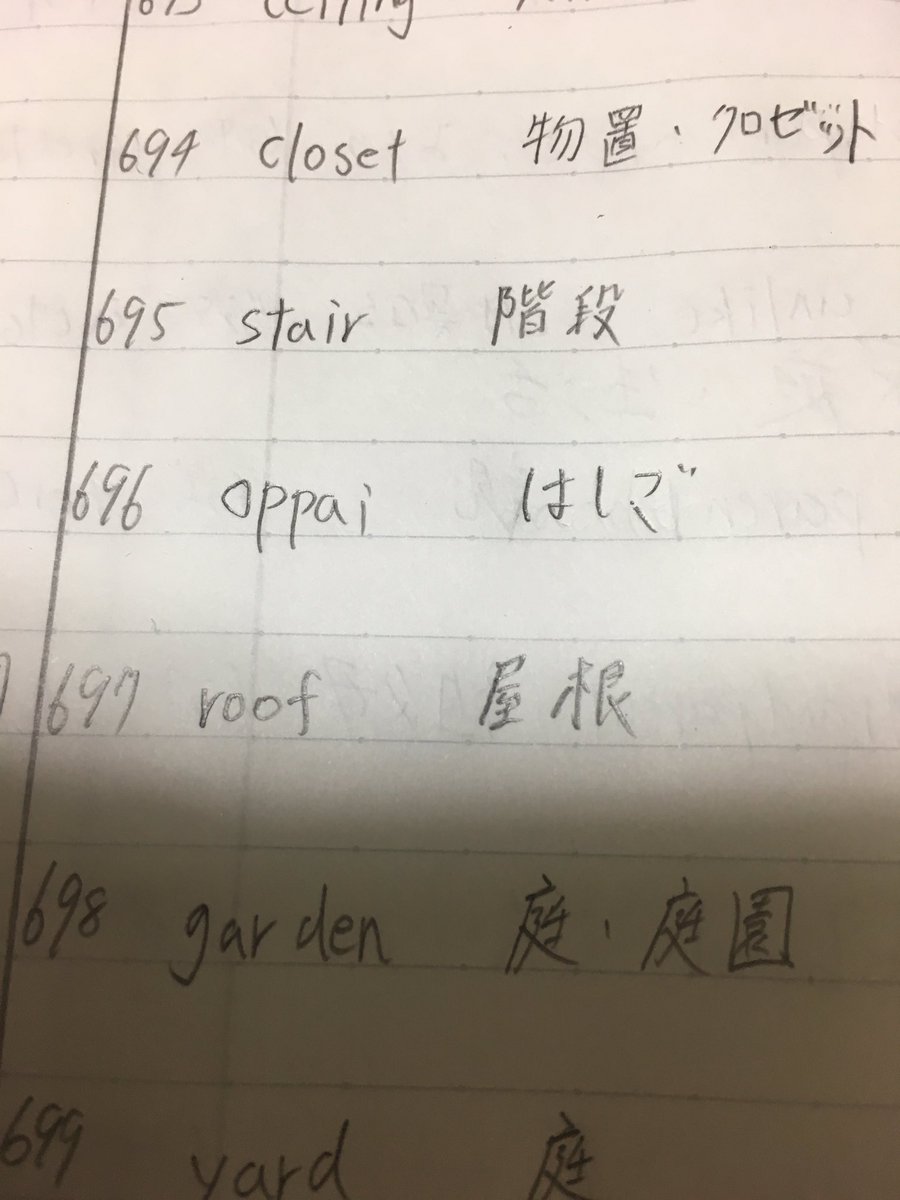 693 ceiling
694 closet 物置・クロゼット
695 stair 階段
696 oppai はしご
697 roof 屋根
698 garden 庭・庭園
699 yard 庭